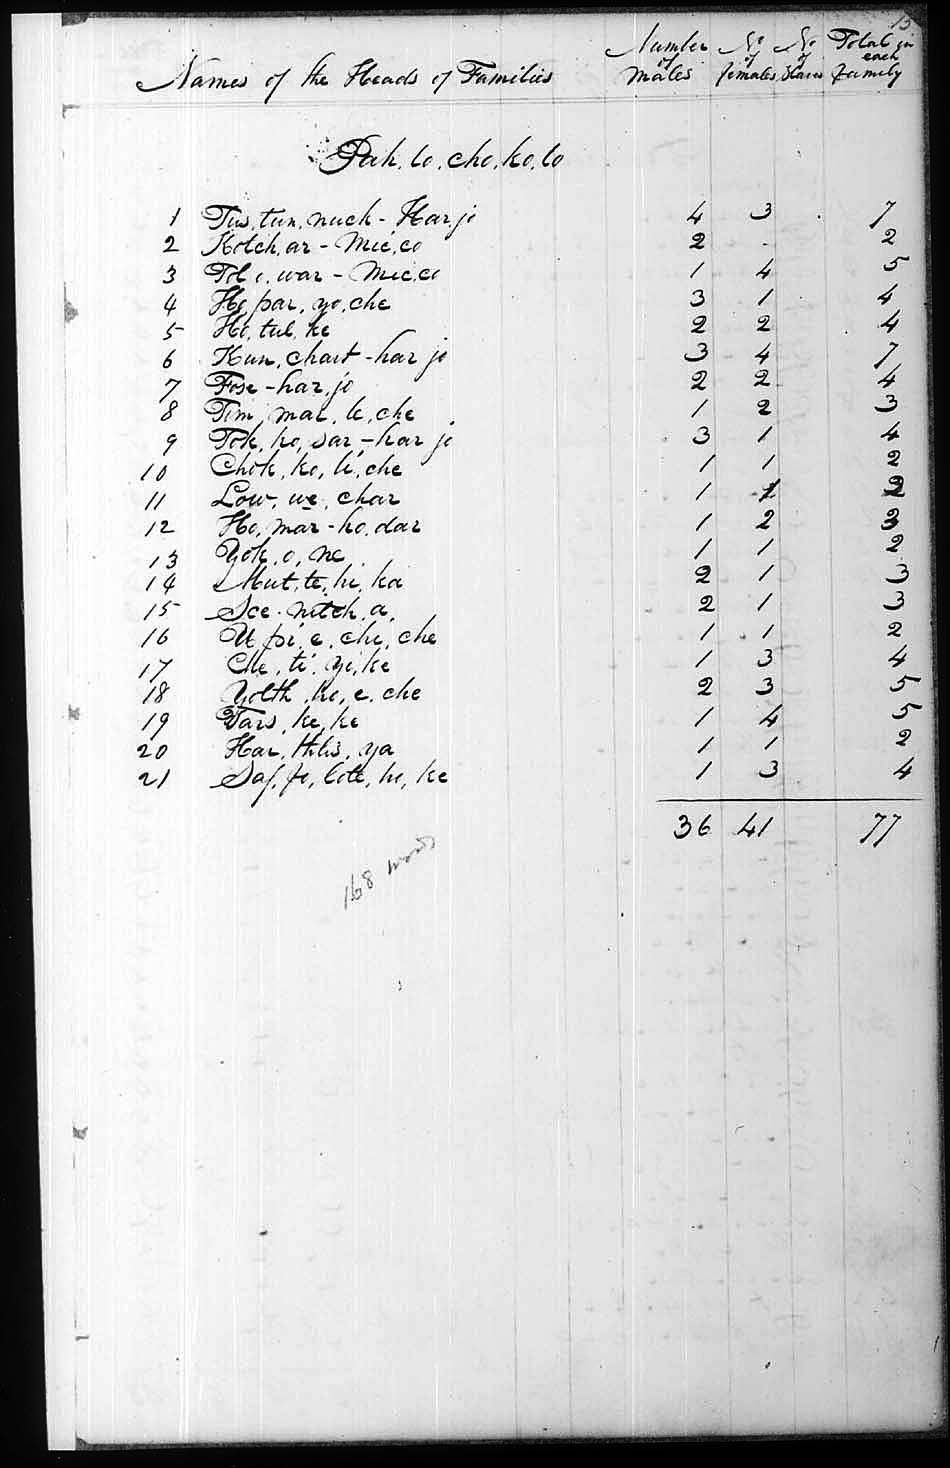 15
Names of the Heads of Families Number of Males No of females No of Slaves Total in each family
Pah, lo, cho, ko, lo
1 Tus, tun, nuck - Har jo 4 3 7
2 Kotch, ar - Mic, co 2 . 2
3 Tol o, war - Mic, co 1 4 5
4 Ho, par, yo, che 3 1 4
5 Ho, tul, ke 2 2 4
6 Kun, chart - har jo 3 4 7
7 Fose - har, jo 2 2 4
8 Tim, mar, le, che 1 2 3
9 Tok, ko, sar - har jo 3 1 4
10 Chok, ko, li, che 1 1 2
11 Low, we, char 1 1 2
12 Ho, mar - ho, dar 1 2 3
13 Yok, o, ne 1 1 2
14 Mut, te, hi, ka 2 1 3
15 Sce - nitch, a, 2 1 3
16 U pi, e, chi, che 1 1 2
17 Che, ti, yi, ke 1 3 4
18 Yolth, ko, e, che 2 3 5
19 Tars, ke, ke 1 4 5
20 Har, thlis, ya 1 1 2
21 Saf, fo, lote, hi, ke 1 3 4
36 41 77
168 words